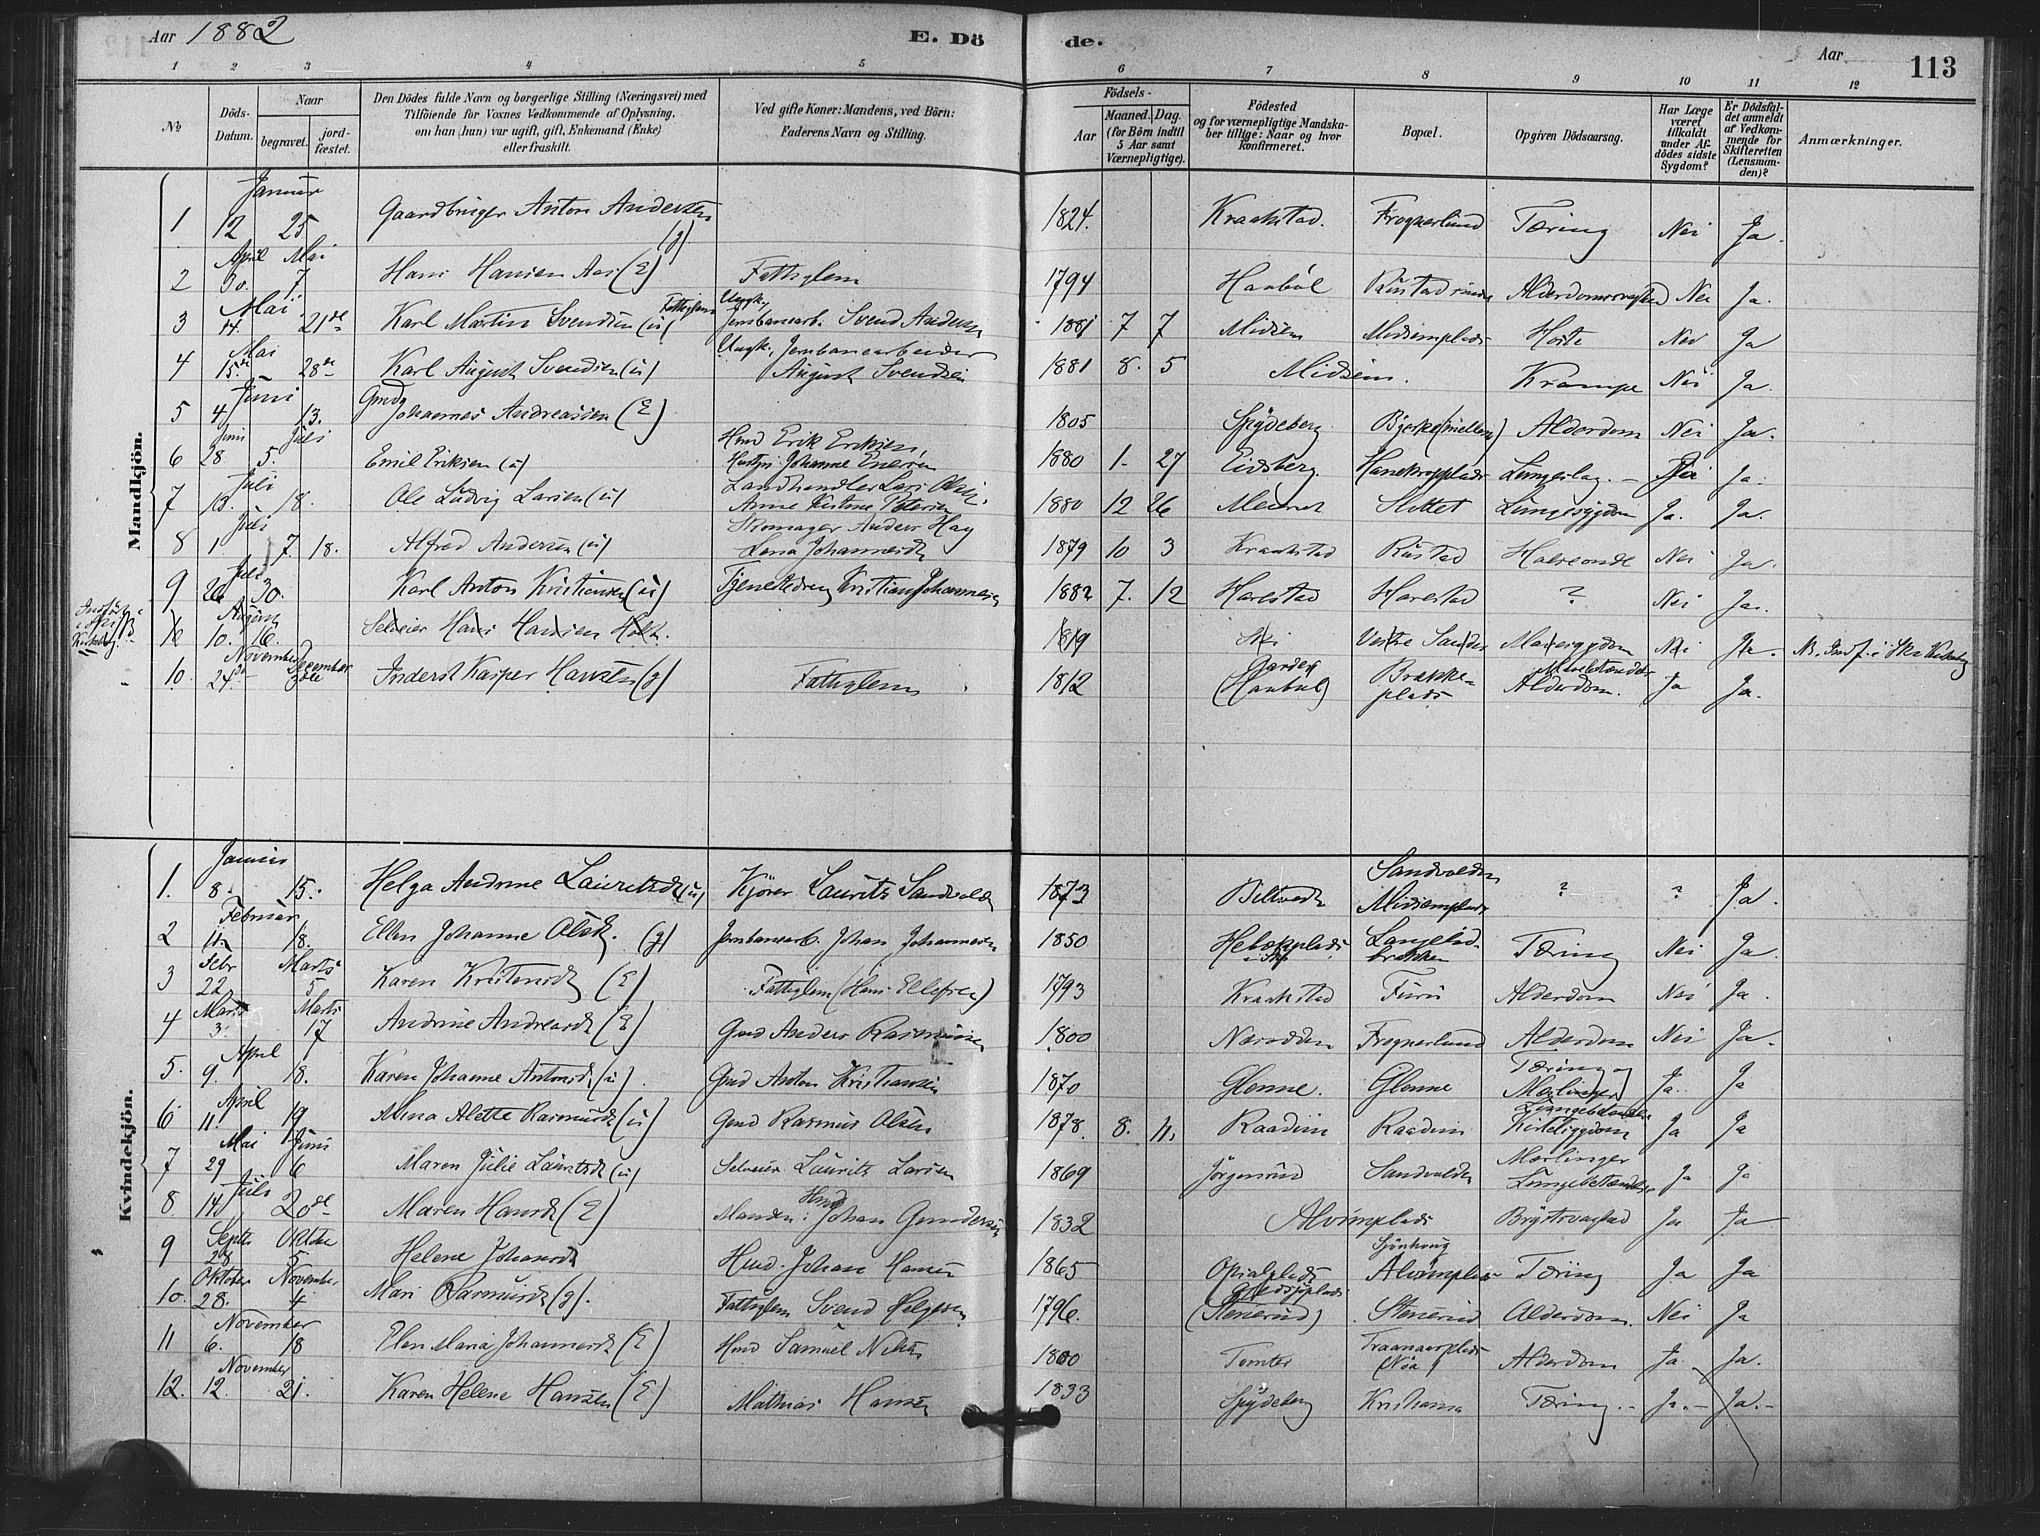 Aar 1882 E. Dö de. Aar 113
1 2 3 4 5 6 7 8 9 10 11 12
No Döds-Datum. Naar begravet. jordfæstet. Den Dödes fulde Navn og borgerlige Stilling (Næringsvei) med Tilföiende for Voxnes Vedkommende af Oplysning. om han (hun) var ugift, gift, Enkemand (Enke) eller fraskilt. Ved gifte Koner: Mandens, ved Börn: Faderens Navn og Stilling. Födsels- Aar Maaned. Dag. (for Börn indtil 5 Aar samt Værnepligtige). Födested og for værnepligtige Mandskaber tillige: Naar og hvor konfirmeret. Bopæl. Opgiven Dödsaarsag. Har Læge været tilkaldt under Afdödes sidste Sygdom? Er Dödsfaldet anmeldt af Vedkommende for Skifteretten (Lensmanden)? Anmærkninger.
Mandkjön.
Januar
1 12 25 Gaardbruger Anton Andersen (g) 1824. Kraakstad. Frognerlund Tæring Nei Ja.
April Mai
2 30. 7 Hans Hansen Aas (E) Fattiglem 1794 Haabøl Rustad Nei Ja.
Mai
3 14. 21de Karl Martin Svendsen (u) Ungk., Jernbanearb. Svend Andersen 1881 7 7 Midsem Midsemplads Hoste Nei Ja
Mai
4 15de 28de Karl August Svendsen (u) Ungk., Jernbanearbeider August Svendsen 1881 8. 5 Midsem. Krampe Nei Ja.
Juni
5 4 13. Gmd Johannes Andreassen (E) 1805 Spydeberg Bjerke (mellem) Alderdom Nei Ja.
Juni Juli
6 28 5. Emil Eriksen (u) Hmd Erik Eriksen, Johanne 1880 1. 27 Eidsberg. Lungeslag. Nei Ja.
Juli
7 13. 18. Ole Ludvig Larsen (u) Landhandler Lars Olsen. Anne 1880 12 26 Slottet Lungesygdom Ja. Ja.
Juli
8 1 7. 18. Alfred Andersen (u) Skomager Anders Lena Johannesdt 1879 10 3 Kraakstad Rustad Halsonde Nei Ja.
Juli
9 26 30. Karl Anton Kristiansen (u) Kristian Johannesen 1882 7. 12 Harestad Harestad ? Nei Ja.
August
10. 16. Selveier Hans Hansen 1819 Ski Nei Ja.
November December
10. 24de 3die Inderst Kasper Hansen (g) Fattiglem 1812 (Haabøl) Brække-plads Alderdom. Ja Ja.
Kvindekjön.
Januar
1. 8. 15. Helga Andrine Lauritsdt (u) Kjörer Laurits Sandvolden 1873 Sandvolden Midsemplads ? ? Ja.
Februar
2 11. 18. Ellen Johanne Olsdt. (g) Jernbanearb. Johan Johannesen 1850 Tæring Nei Ja.
Febr Marts
3 22 5 Karen Kristensdt (E) Fattiglem (Hans Ellefsen) 1793 Kraakstad Furu Alderdom Nei Ja.
Marts Marts
4 3. 17 Andrine Andreasdt (E) Gmd Anders Rasmussen 1800 Næsodden Frognerlund Alderdom Nei Ja.
April
5. 9. 18. Karen Johanne Antonsdt (u) Gmd Anton Kristiansen 1870 Glenne. Glenne Tæring og Mæslinger Ja. Ja
April
6. 11. 19 Alma Alette Rasmusdt (u) Gmd Rasmus Olsen 1878. 8. 11. Raadim Raadim Ja Ja
Mai Juni
7 29 6 Maren Julie Lauritsdt (u) Selveier Laurits Larsen 1869 Jørgensrud Sandvolden Mæslinger Lungebetændelse Ja Ja
Juli
8 14de 20de Maren Hansdt (E) Manden: Hmd Johan Gundersen 1832 Alvimplads Ja Ja
Septbr Oktober
9 28 5. Helene Johansdt Hmd. Johan Hansen 1865 Alvimplads Tæring Ja Ja
Oktober November
10. 28. 4 Mari Rasmusdt (g). Fattiglem Svend Helgesen. 1796. (Stenerud) Stenerud Alderdom. Nei Ja
November
11 6. 18 Elen Maria Johannesdt (E) Hmd Samuel Nilsen 1800 Tomter Alderdom Ja. Ja.
November
12. 12. 21. Karen Helene Hansen (E) Mathias Hansen 1833 Spydeberg Kristiania Tæring. Ja. Ja.